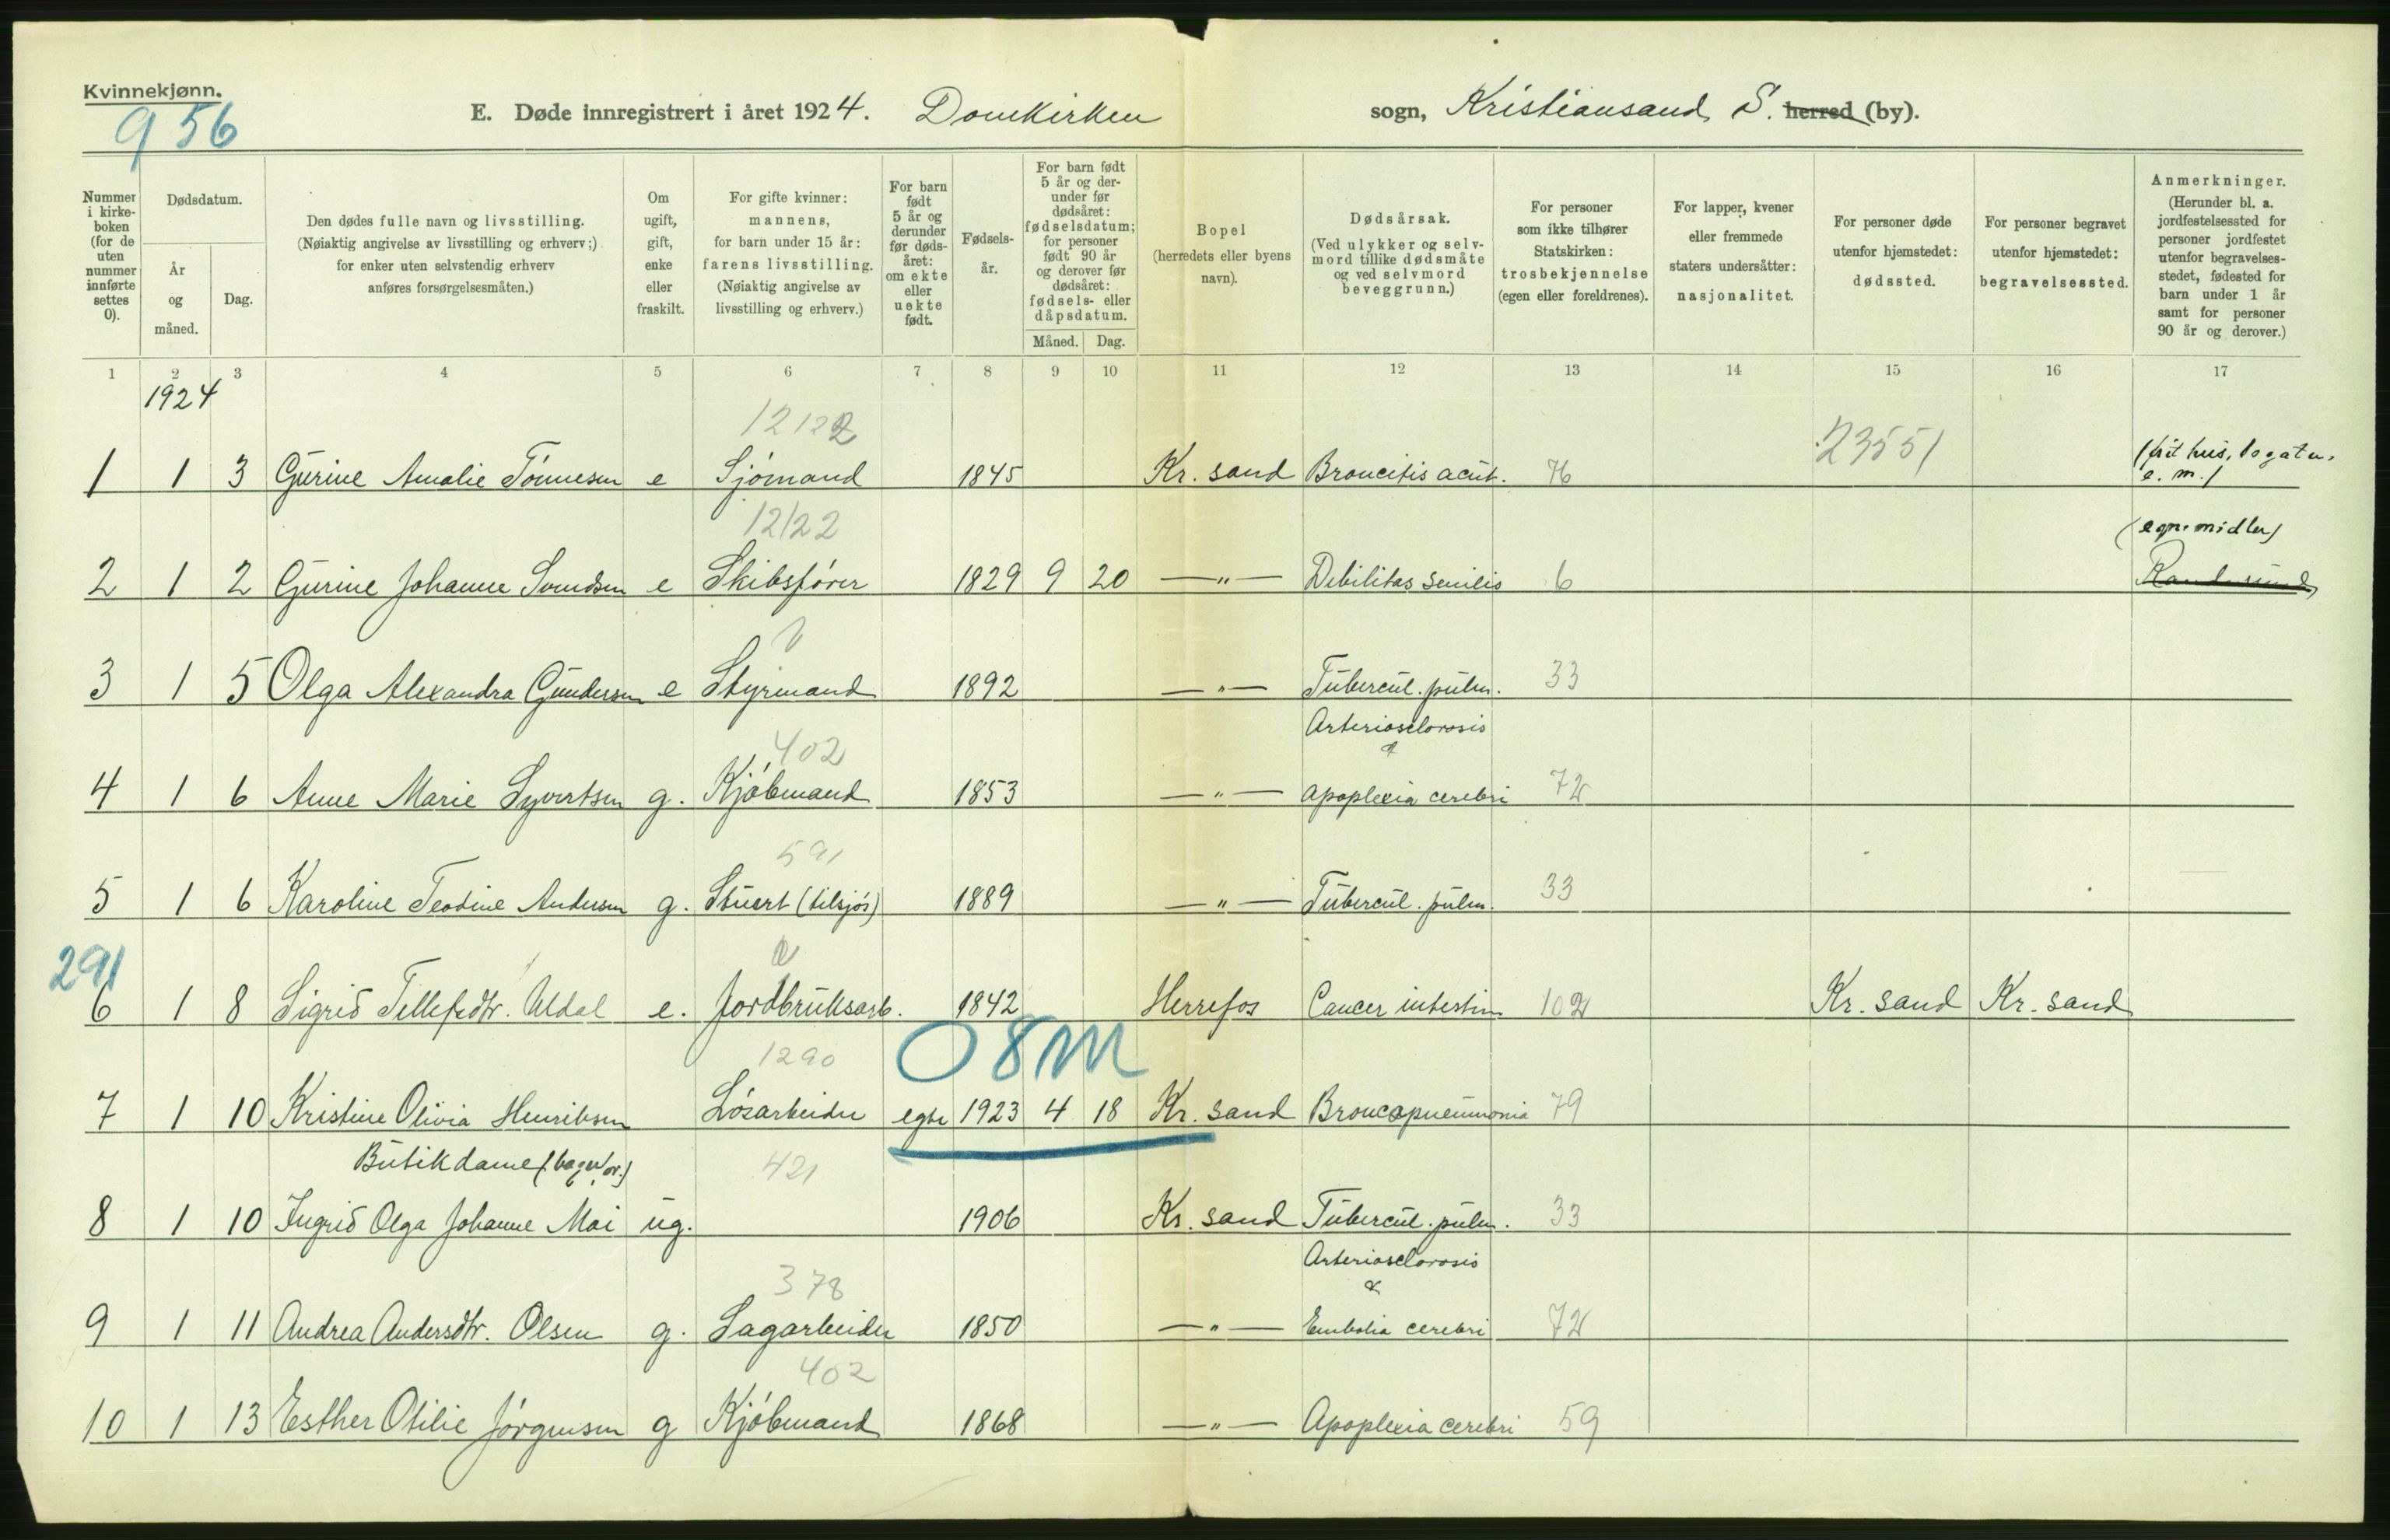 Kvinnekjønn.
956
E. Døde innregistrert i året 1924. Domkirken sogn, Kristiansand S. herred (by).
Nummer i kirke-boken (for de uten nummer innførte settes 0).
Dødsdatum.
År og måned.
Dag.
Den dødes fulle navn og livsstilling. (Nøiaktig angivelse av livsstilling og erhverv;) for enker uten selvstendig erhverv anføres forsørgelsesmåten.)
Om ugift, gift, enke eller fraskilt.
For gifte kvinner: mannens, for barn under 15 år: farens livsstilling. (Nøiaktig angivelse av livsstilling og erhverv.)
For barn født 5 år og derunder før døds-året: om ekte eller uekte født.
Fødsels-år.
For barn født 5 år og der-under før dødsåret: fødselsdatum; for personer født 90 år og derover før dødsåret: fødsels- eller dåpsdatum.
Måned. Dag.
Bopel (herredets eller byens navn).
Dødsårsak. (Ved ulykker og selv-mord tillike dødsmåte og ved selvmord beveggrunn.)
For personer som ikke tilhører Statskirken: trosbekjennelse (egen eller foreldrenes).
For lapper, kvener eller fremmede staters undersåtter: nasjonalitet.
For personer døde utenfor hjemstedet: dødssted.
For personer begravet utenfor hjemstedet: begravelsessted.
Anmerkninger. (Herunder bl. a. jordfestelsessted for personer jordfestet utenfor begravelses-stedet, fødested for barn under 1 år samt for personer 90 år og derover.)
1 2 3 4 5 6 7 8 9 10 11 12 13 14 15 16 17
1924
12122 23551
1 1 3 Gurine Amalie Tönnesen e Sjömand 1845 Kr. sand Broncitis acut. 76 (frit hus, legatu. e. m.)
12122 (egne midler)
2 1 2 Gurine Johanne Svendsen e Skibsförer 1829 9 20 —"— Debilitas senilis 6 Randesund
3 1 5 Olga Alexandra Gundersen e Styrmand 1892 —"— Tubercul. pulm. 33
402 Arteriosclorosis &
4 1 6 Anne Marie Syvertsen g. Kjöbmand 1853 —"— apoplexia cerebri 72
591
5 1 6 Karoline Teodine Andersen g. Stuert (tilsjös) 1889 —"— Tubercul. pulm. 33
291
6 1 8 Sigrid Tellefsdtr. Uldal e. Jordbruksarb. 1842 Herrefos Cancer intestin 102 Kr. sand Kr. sand
1290 08M
7 1 10 Kristine Olivia Henriksen Lösarbeider egte 1923 4 18 Kr. sand Broncopneumonia 79
Butikdame (bageri) 421
8 1 10 Ingrid Olga Johanne Moi ug. 1906 Kr. sand Tubercul. pulm. 33
378 Arteriosclorosis &
9 1 11 Andrea Andersdtr. Olsen g. Sagarbeider 1850 —"— Embolia cerebri 72
402
10 1 13 Esther Otilie Jörgensen g Kjöbmand 1868 —"— Apoplexia cerebri 59